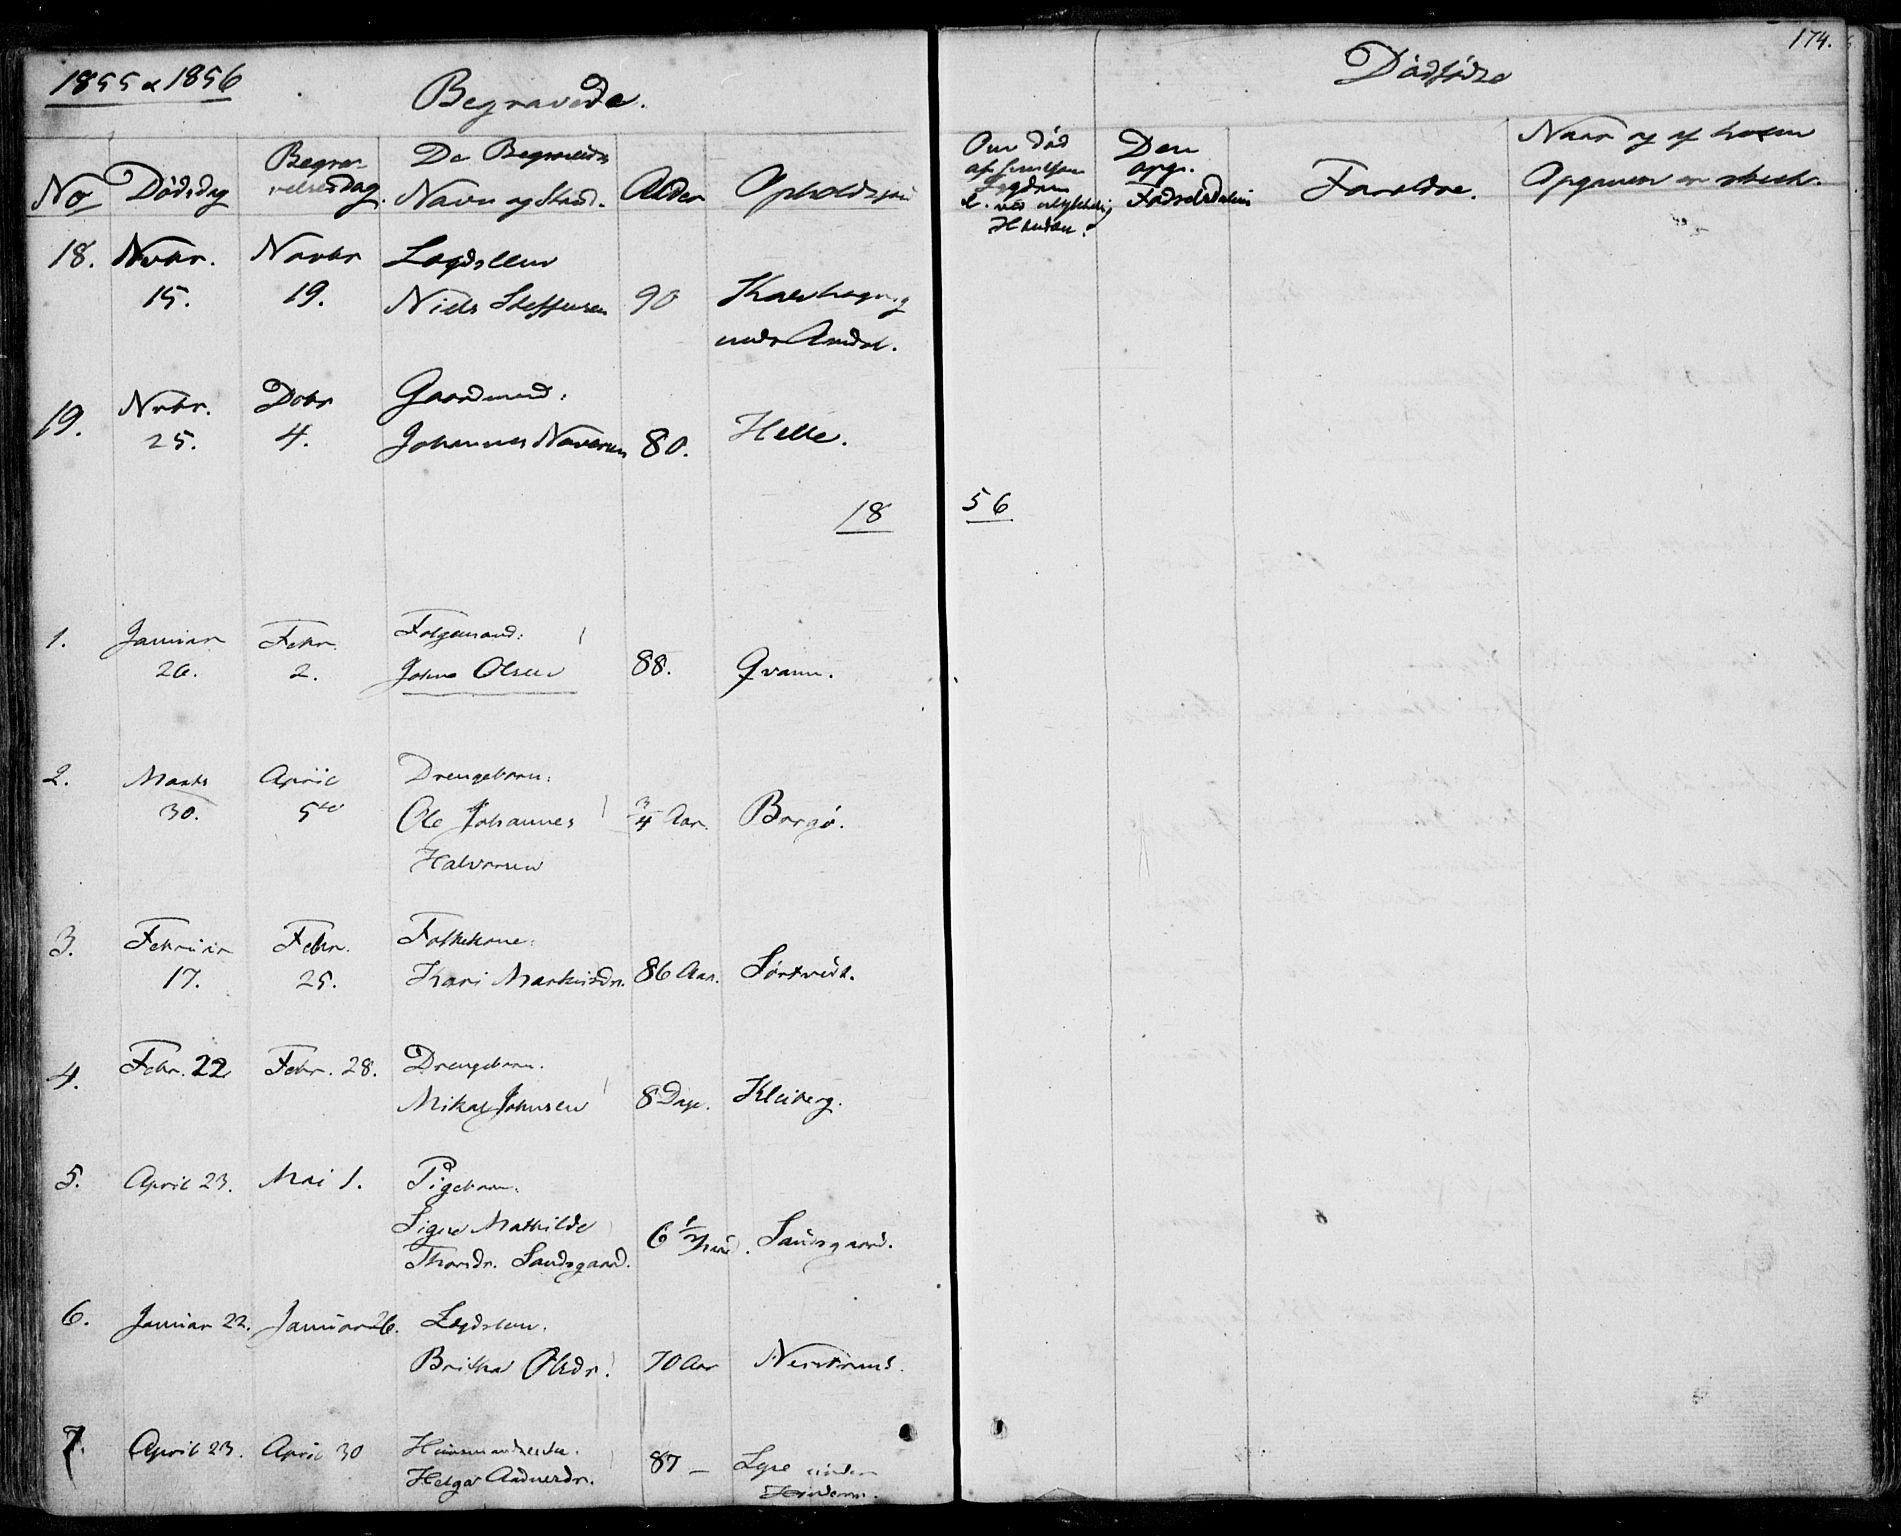 174.
1855 & 1856
Begravede.
Dødfødte
No
Dødsdag
Begra-
velsesdag.
De Begravedes
Navn og Stand.
Alder
Opholdssted
Om død
af
Sygdom
e. ved ulykkelig
Hændelse.
Den
opg.
Fødselsdatum
Forældre.
Naar og af hvem
Opgaven er skeet.
18. Nvbr. Novbr Lægdslem
15. 19. Niels Steffensen 90
under Amdal.
19. Nvbr. Dcbr Gaardmand:
25. 4. Johannes 80. Helle.
18 56
1. Januar Febr. Folgemand:
26. 2. Johns Olsen 88. Qvam.
2. Marts April Drengebarn:
30. 5te Ole Johannes 3/4 Aar. Borgø.
Halvorsen
3. Februar Febr. Folkekone:
17. 25. Kari Markusdr. 86 Aar. Sørtveit.
4. Febr. 22 Febr. 28. Drengebarn.
Mikal Johnsen 8 Dage. Kleiberg.
5. April 23. Mai 1. Pigebarn.
Signe Mathilde 6 1/2 Sandsgaard.
Thorsdr. Sandsgaard.
6. Januar 22. Januar 26. Lægdslem.
Britha Olsdr. 70 Aar
7. April 23. April 30 Huusmandsenke.
Helga Aadnesdr. 87 – Lyse under